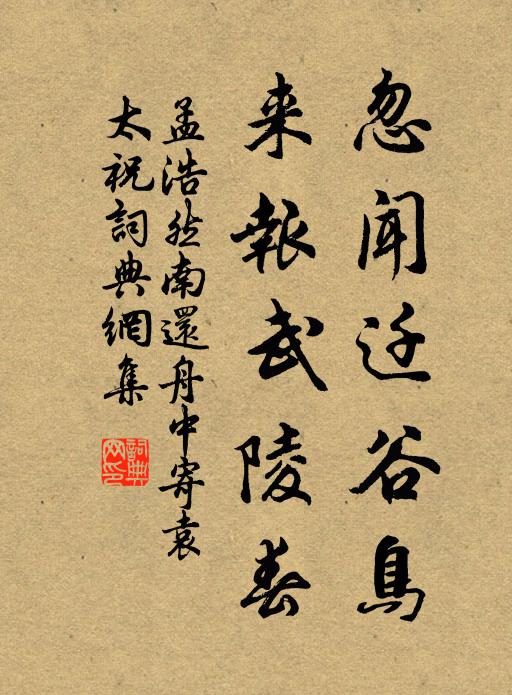 忽聞迁谷鳥
来報武陵春
孟浩然南還舟中寄袁
太祝詞典網集
詞典网印